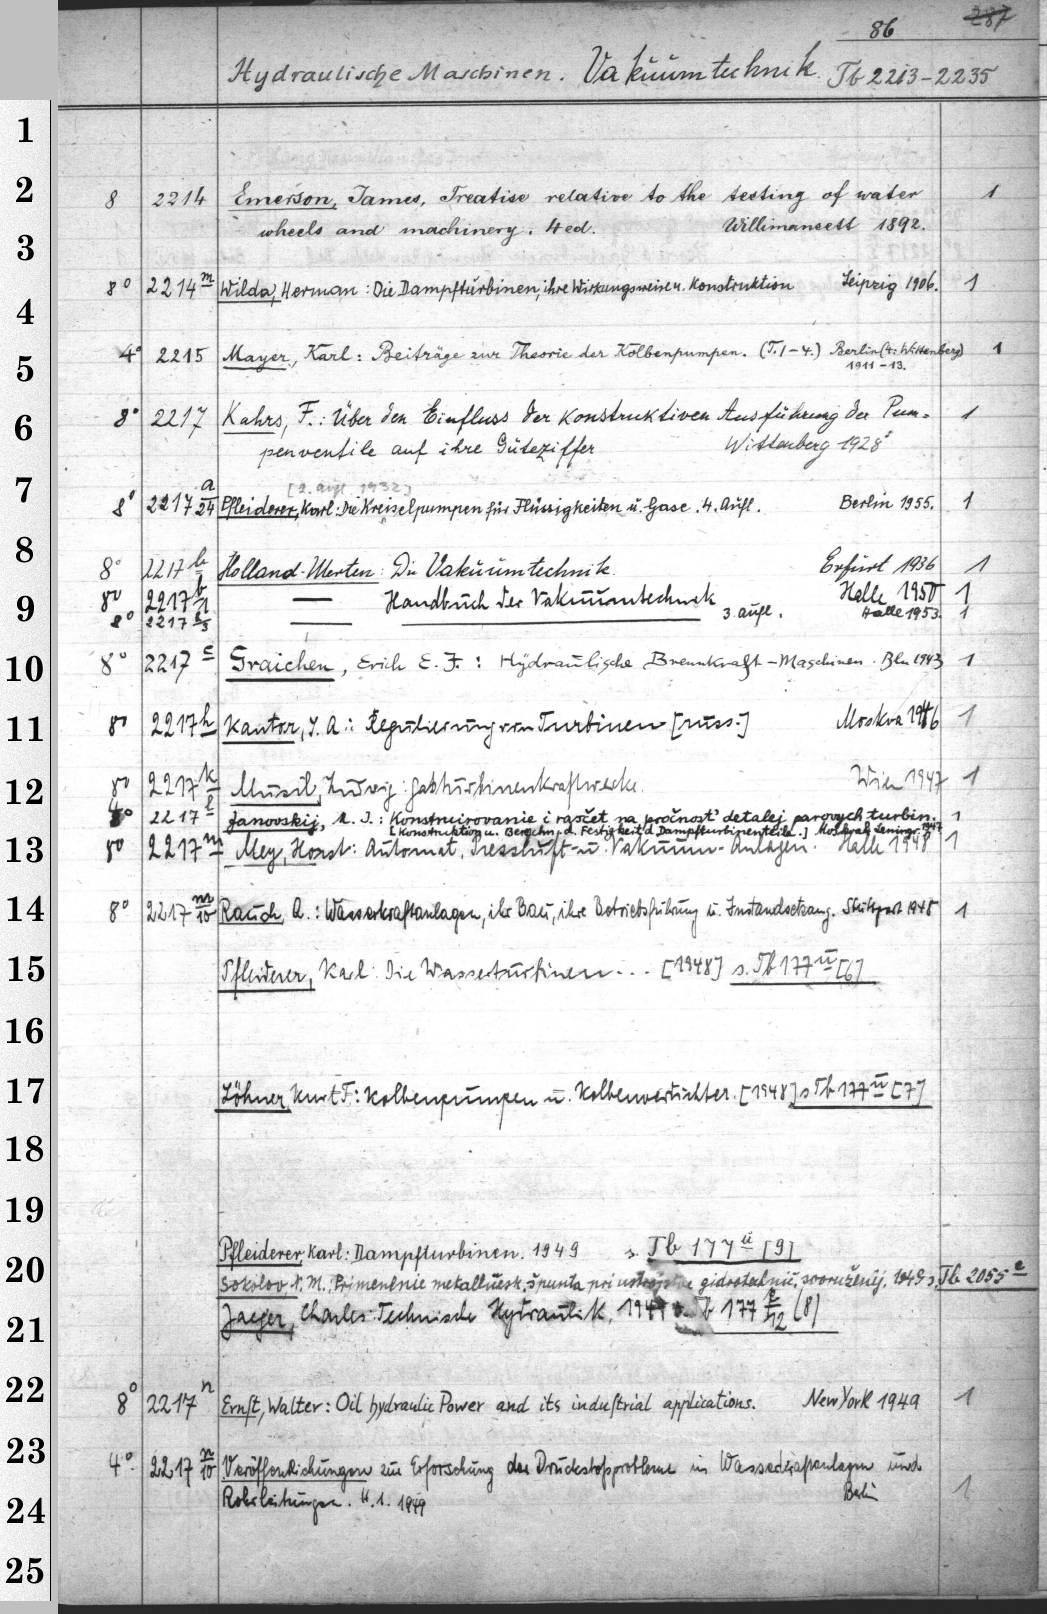 86 287
Hydraulische Maschinen. Vakuumtechnik. Tb 2213-2235
1
2 8 2214 Emerson, James, Treatise relative to the testing of water 1
wheels and machinery. 4 ed. Willimansett 1892.
3
8° 2214 m Wilda, Herman: Die Dampfturbinen, ihre Wirkungsweise u. Konstruktion Leipzig 1906. 1
4
4° 2215 Mayer, Karl: Beiträge zur Theorie der Kolbenpumpen. (T. 1-4.) Berlin (4: Wittenberg) 1
5 1911-13.
6 8° 2217 Kahrs, F.: Über den Einfluss der konstruktiven Ausführung der Pum= 1
penventile auf ihre Güteziffer Wittenberg 1928
7 [2. Aufl. 1932]
8° 2217 a/24 Pfleiderer, Karl: Die Kreiselpumpen für Flüssigkeiten u. Gase. 4. Aufl. Berlin 1955. 1
8
8° 2217 b Holland-Merten: Die Vakuumtechnik. Erfurt 1936 1
9 8° 2217 b/1 — Handbuch der Vakuumtechnik Halle 1950 1
8° 2217 b/3 — 3. Aufl. Halle 1953. 1
10 8° 2217 c Graichen, Erich E. F.: Hydraulische Brennkraft-Maschinen. Bln 1943 1
11 8° 2217 h Kantor, S. A.: Regulierung von Turbinen [russ.] Moskva 1946 1
12 8° 2217 k Musil, Ludwig: Gasturbinenkraftwerke. Wien 1947 1
4° 2217 l Janovskij, M. I.: Konstruirovanie i rasčet na pročnost' detalej parovych turbin. 1
[Konstruktion u. Berechn. d. Festigkeit d. Dampfturbinenteile.] Moskva, Leningr. 1947
13 8° 2217 m Mey, Horst: Automat, Pressluft- u. Vakuum-Anlagen. Halle 1948 1
14 8° 2217 m/10 Rauch, A.: Wasserkraftanlagen, ihr Bau, ihre Betriebsführung u. Instandsetzung. Stuttgart 1948 1
15 Pfleiderer, Karl: Die Wasserturbinen... [1948] s. Tb 177 u [6]
16
17 Löhner, Kurt F.: Kolbenpumpen u. Kolbenverdichter. [1948] s Tb 177 u [7]
18
19
Pfleiderer, Karl: Dampfturbinen. 1949 s. Tb 177 u [9]
20 Sokolov N. M. Primenenie metalličesk. špunta pri ustrojstve gidrotechnič. sooruženij. 1949 s. Tb 2055 e
21 Jaeger, Charles: Technische Hydraulik, 1949 Tb 177 /12 (8)
22 8° 2217 n Ernst, Walter: Oil hydraulic Power and its industrial applications. New York 1949 1
23 4° 2217 n/10 Veröffentlichungen zur Erforschung der Druckstoßprobleme in Wasserkraftanlagen und
24 Rohrleitungen. H. 1. 1949 Berlin 1
25